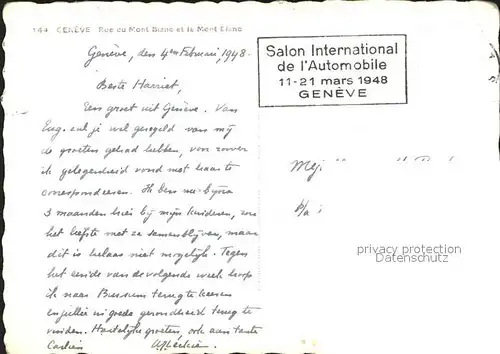 144 GENÈVE Rue du Mont Blanc et le Mont Blanc
Genève, den 4den Februari, 1948.
Salon International
de l'Automobile
11-21 mars 1948
GENÈVE
Beste Harriet,
Een groet uit Genève. Van
Eug. zul je wel geregeld van mij
de groeten gehad hebben, voor zover
ik gelegenheid vond met haar te
correspondeeren. Ik ben nu bijna
3 maanden hier bij mijn kinderen, zou
het liefste met ze samenblijven, maar
dit is helaas niet mogelijk. Tegen
het einde van de volgende week hoop
ik naar Bussum terug te keeren
en jullie in goede gezondheid terug te
vinden. Hartelijke groeten, ook aan tante
Mej.
p/a
privacy protection
Datenschutz